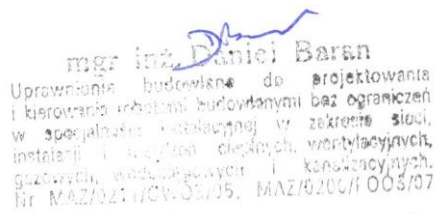 mgr inż. Daniel Baran
Uprawnienia budowlane do projektowania
i kierowania robotami budowlanymi bez ograniczeń
w specjalności instalacyjnej w zakresie sieci,
instalacji i urządzeń cieplnych, wentylacyjnych,
gazowych, wodociągowych i kanalizacyjnych.
Nr